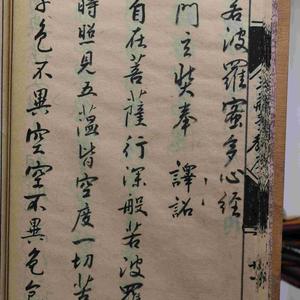 若波羅蜜多心經
門玄奘奉 譯詔
自在菩薩行深般若波羅
時照見五蘊皆空度一切苦
子色不異空空不異色色